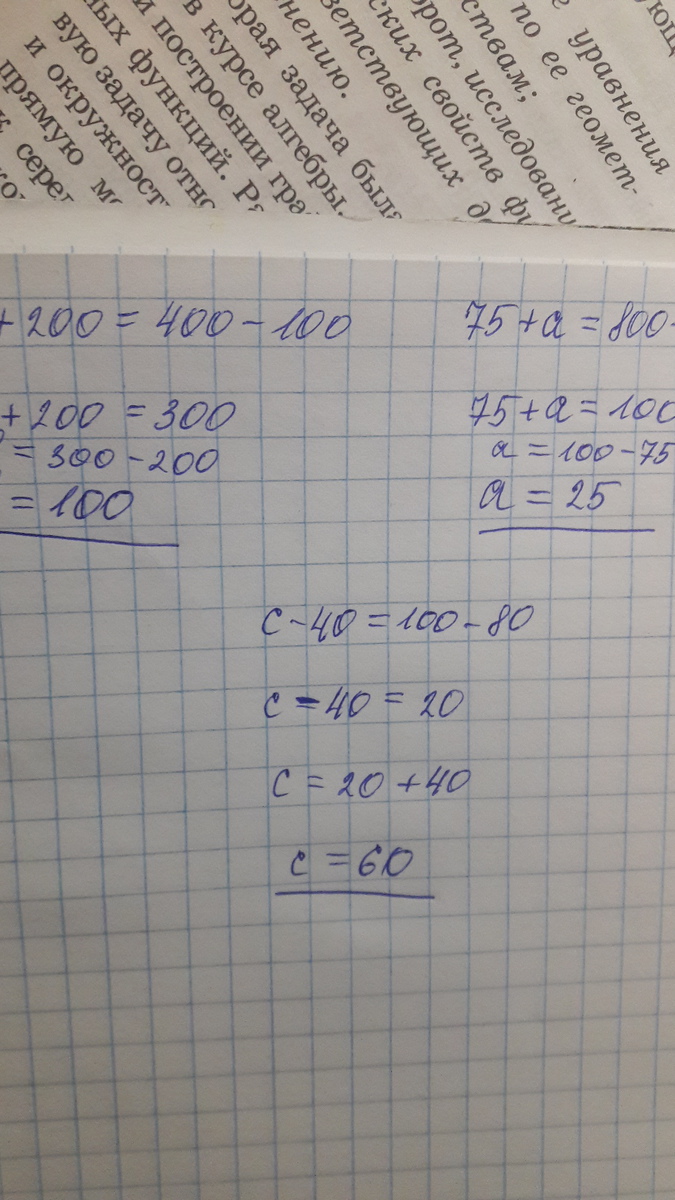 уравнения
по ее геомет-
ствам;
орот, исследовани
ских свойств фи
ветствующих
нению.
орая задача была
в курсе алгебры.
и построении гра
ных функций.
вую задачу отно
и окружност
прямую
+ 200 = 400 - 100
75 + a = 800
+ 200 = 300
75 + a = 100
= 300 - 200
a = 100 - 75
= 100
a = 25
c - 40 = 100 - 80
c - 40 = 20
c = 20 + 40
c = 60